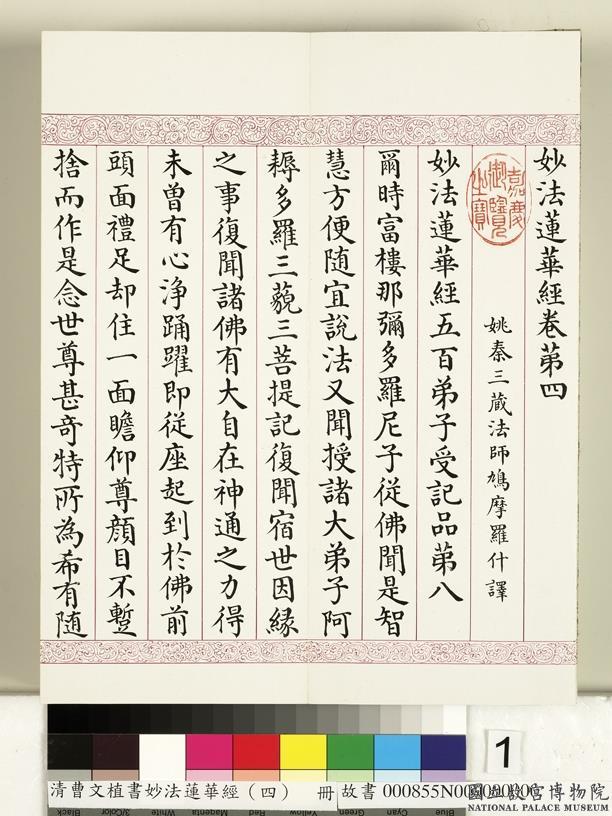 妙法蓮華經卷第四
嘉慶御覽之寶
姚秦三藏法師鳩摩羅什譯
妙法蓮華經五百弟子受記品第八
爾時富樓那彌多羅尼子從佛聞是智
慧方便随宜說法又聞授諸大弟子阿
耨多羅三藐三菩提記復聞宿世因緣
之事復聞諸佛有大自在神通之力得
未曾有心淨踊躍即從座起到於佛前
頭面禮足却住一面瞻仰尊顔目不蹔
捨而作是念世尊甚奇特所為希有随
1
清曹文植書妙法蓮華經(四) 冊 故書 000855N000000000
國立故宮博物院
NATIONAL PALACE MUSEUM